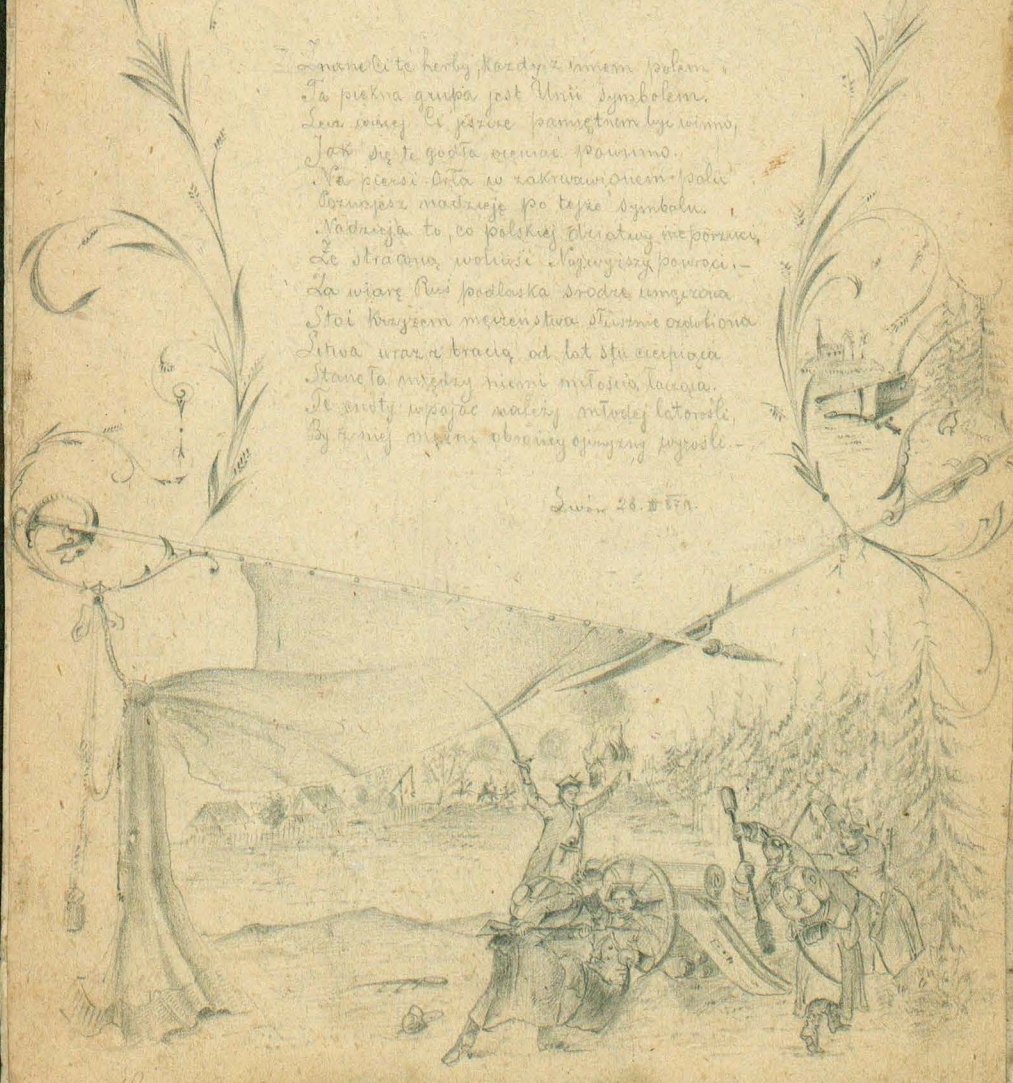 Znane Ci te herby, każdy z innem polem
Ta piękna grupa jest Unii symbolem.
Lecz więcej Ci jeszcze pamiętnem być winno,
Jak się te godła oceniać powinno.
Na piersi Orła w zakrwawionem polu
Poznajesz nadzieję po tejże symbolu.
Nadzieja to, co polskiej dziatwy nie porzuci,
Że straconą wolność Najwyższy powróci.—
Za wiarę Ruś podlaska srodze umęczona
Stoi krzyżem męczeństwa słusznie ozdobiona
Litwa wraz z bracią od lat stu cierpiąca
Stanęła między niemi miłością łącząca.
Te cnoty wpajać należy młodej latorośli,
By z niej mężni obrońcy ojczyzny wyrośli.—
Lwów 28.